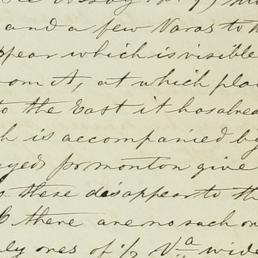 and a few Varas to
appear which is visible
from A, at which plac
to the East it has alrea
h is accompanied by
aged promonton give
these disappear to th
B there are no such or
ly ones of 1/2 Va wide